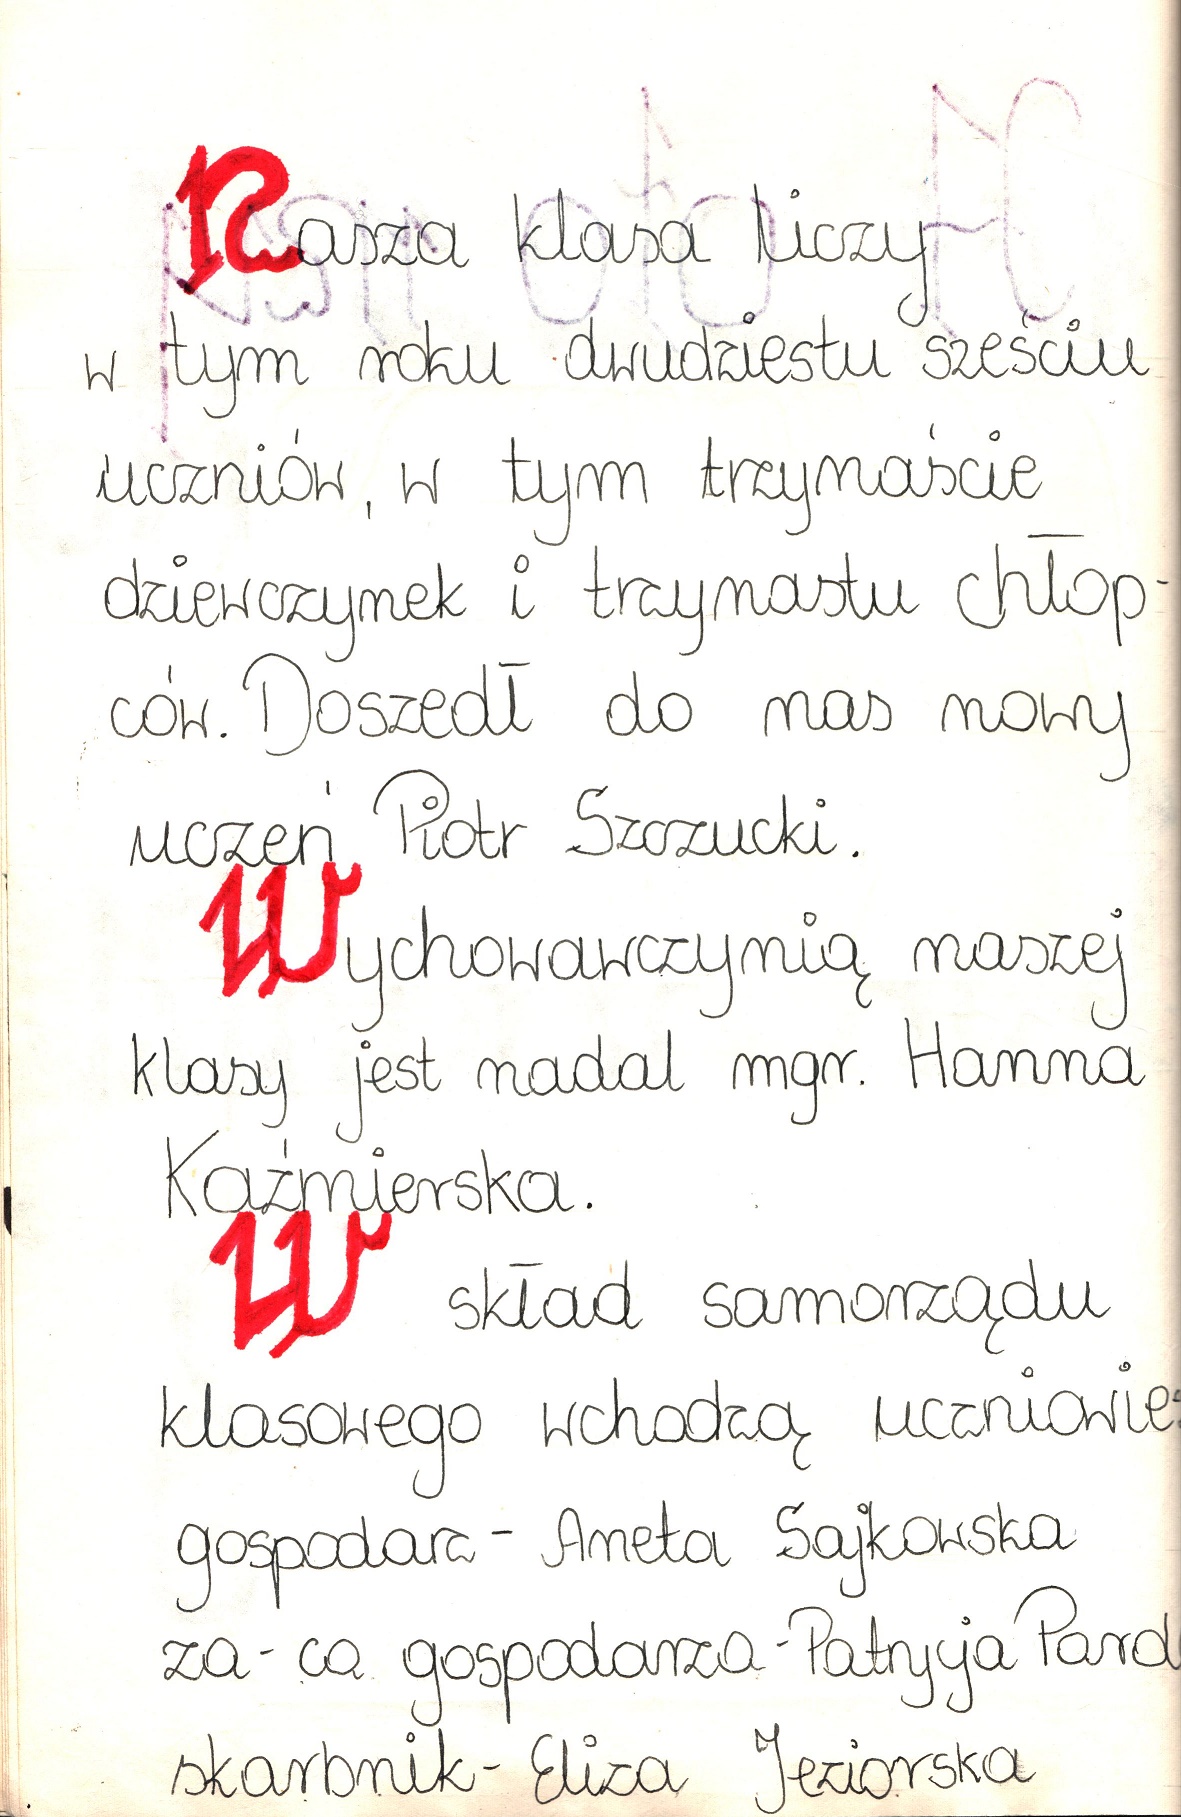 Nasza klasa liczy
w tym roku dwudziestu sześciu
uczniów, w tym trzynaście
dziewczynek i trzynastu chłop-
ców. Doszedł do nas nowy
uczeń Piotr Szczucki.
Wychowawczynią naszej
klasy jest nadal mgr. Hanna
Kaźmierska.
W skład samorządu
klasowego wchodzą uczniowie:
gospodarz - Aneta Sajkowska
za-ca gospodarza - Patrycja
skarbnik - Eliza Jeziorska